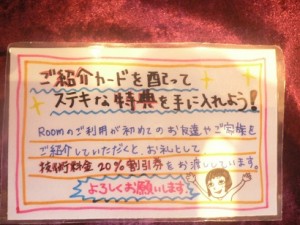 ご紹介カードを配って
ステキな特典を手に入れよう!
Roomのご利用が初めてのお友達やご家族を
ご紹介していただくと、お礼として
技術料金20%割引券をお渡ししています。
よろしくお願いします